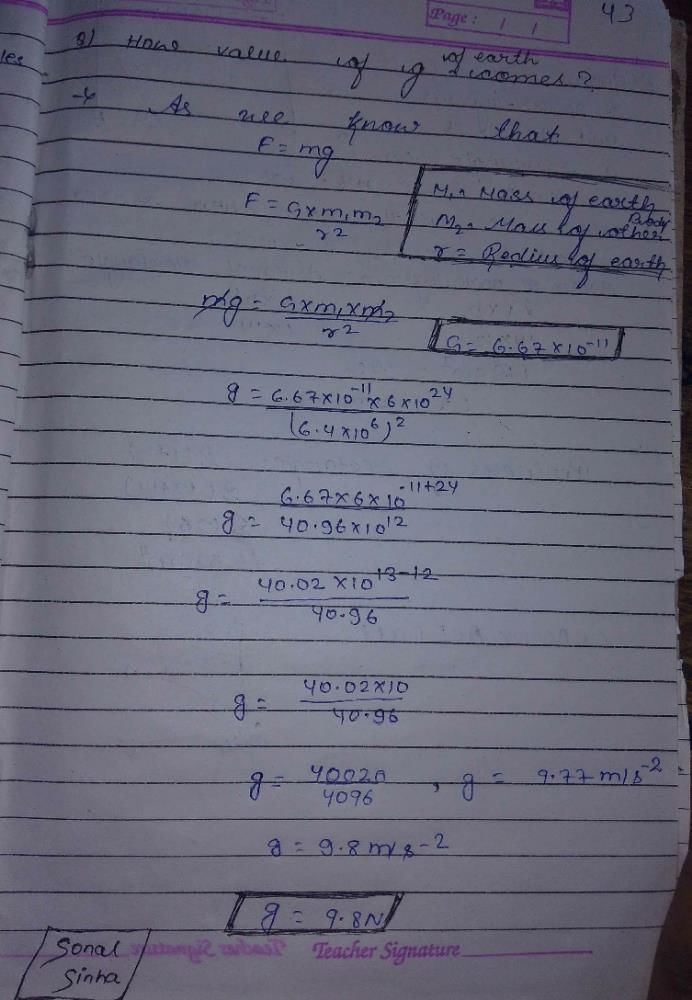 43
Page : / /
les
Q) How value of g of earth comes?
→ As we know that
F = mg
F = G×m₁m₂
r²
M₁ = Mass of earth
M₂ = Mass of other Body
r = Redius of earth
mg = G×m₁×m₂
r²
G = 6.67×10⁻¹¹
g = 6.67×10⁻¹¹×6×10²⁴
(6.4×10⁶)²
g = 6.67×6×10⁻¹¹⁺²⁴
40.96×10¹²
g = 40.02×10¹³⁻¹²
40.96
g = 40.02×10
40.96
g = 40020 , g = 9.77 m/s⁻²
4096
g = 9.8 m/s⁻²
g = 9.8N
Teacher Signature
Sonal
Sinha